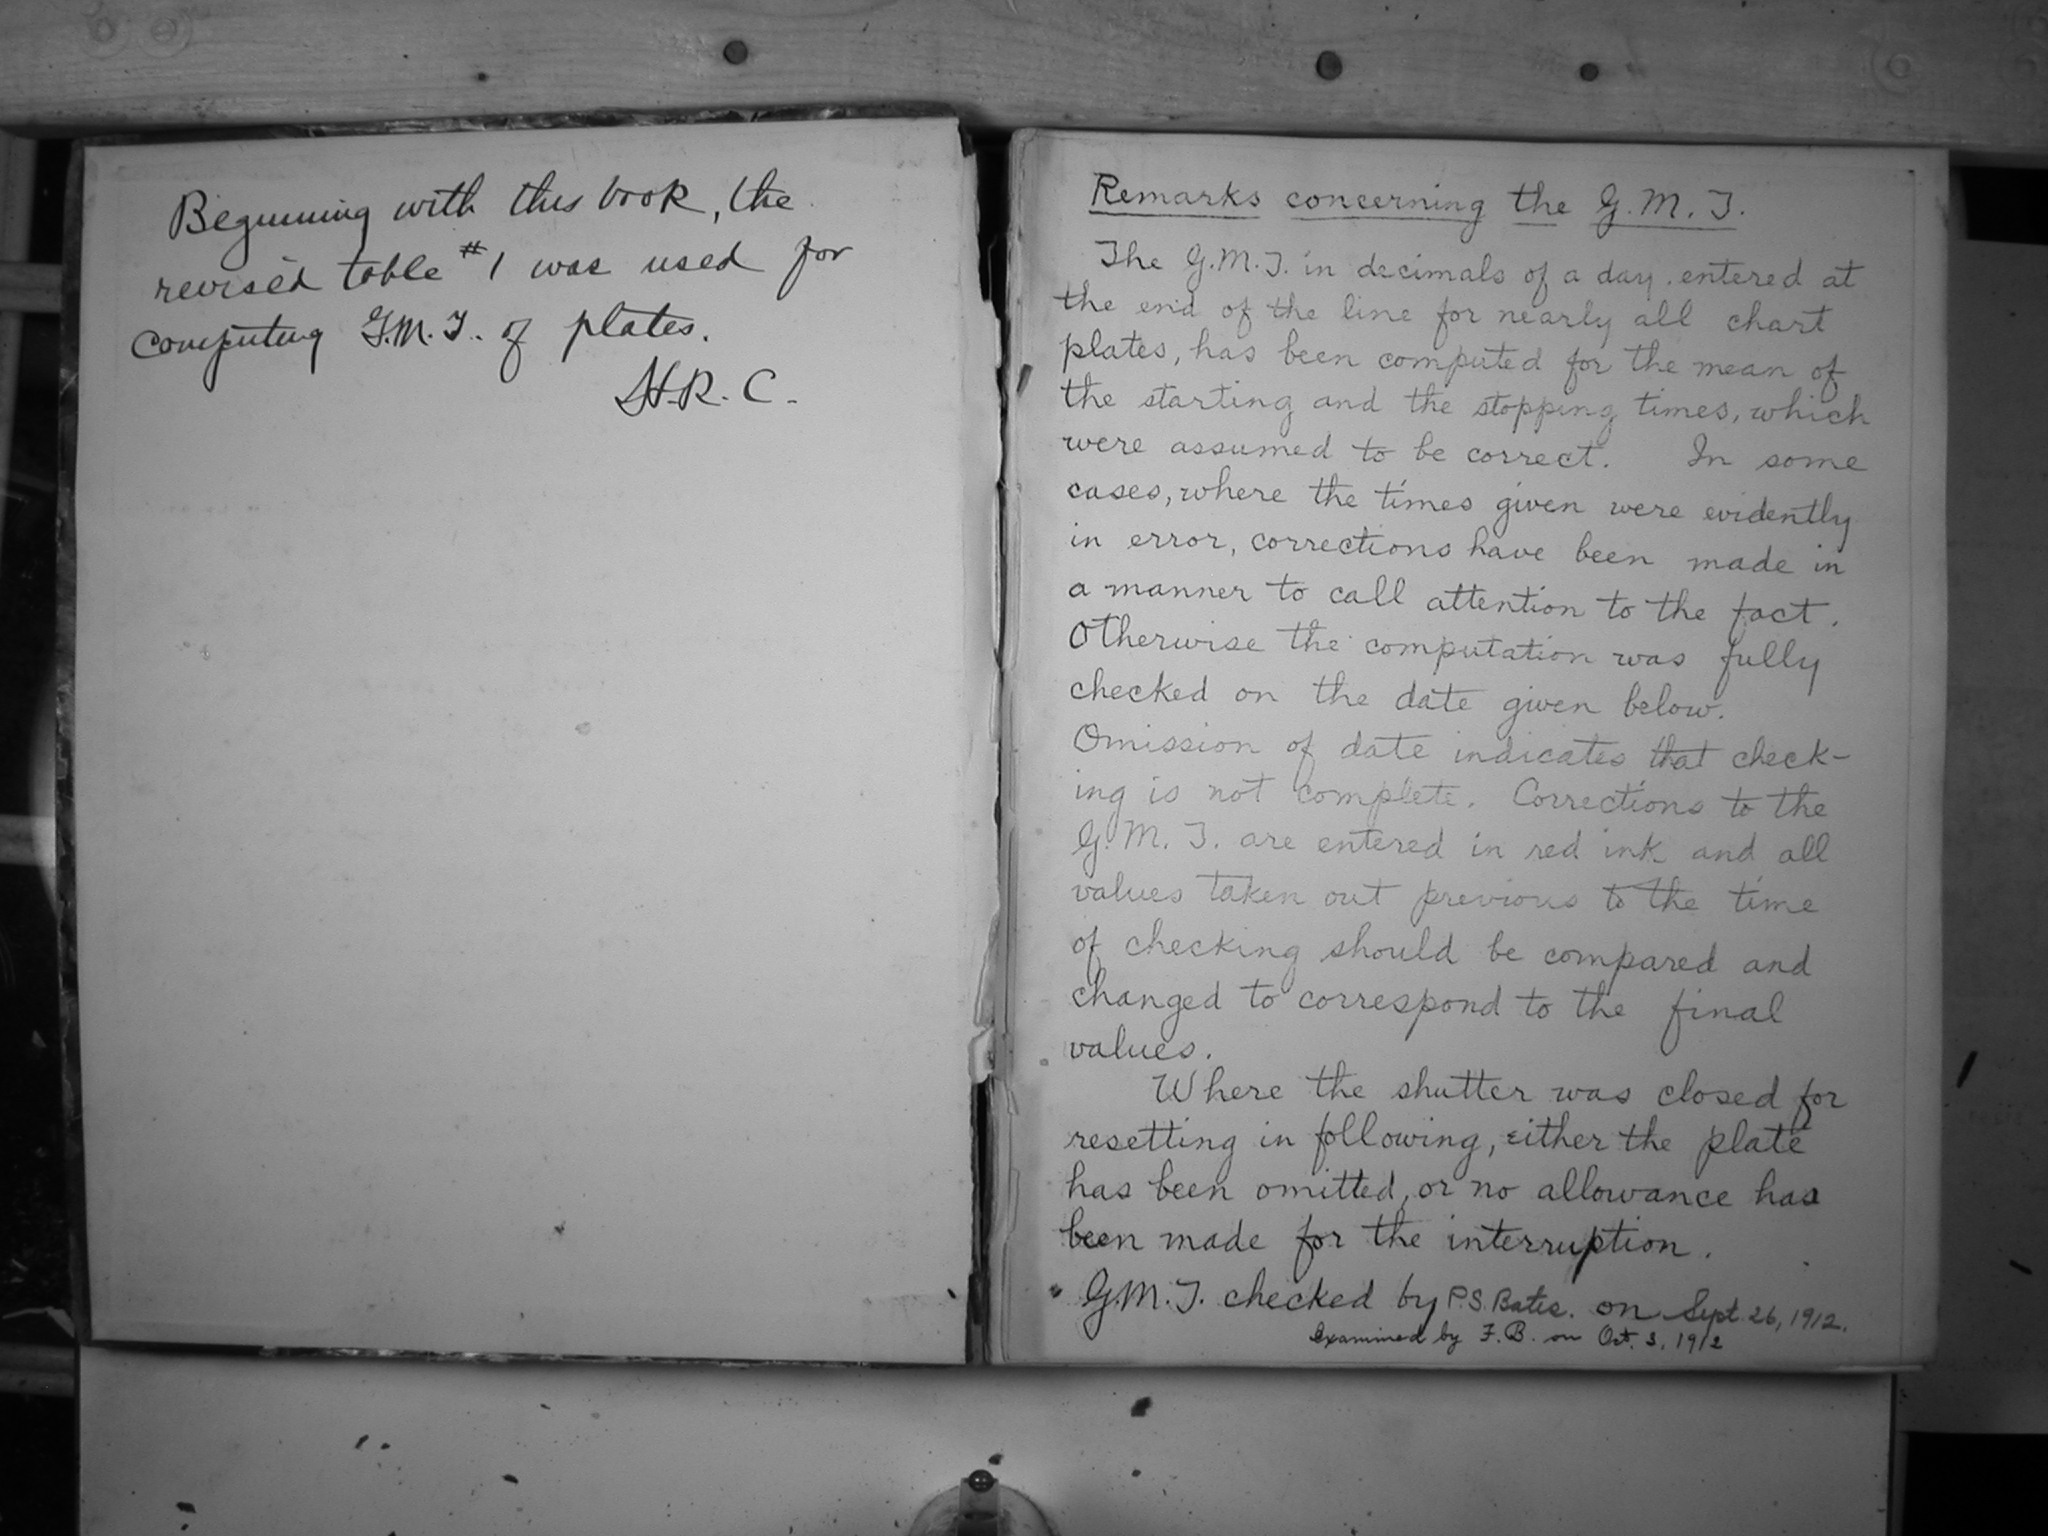 Beginning with this book, the
revised table #1 was used for
computing G.M.T. of plates.
H.R.C.
Remarks concerning the G.M.T.
The G.M.T. in decimals of a day, entered at
the end of the line for nearly all chart
plates, has been computed for the mean of
the starting and the stopping times, which
were assumed to be correct. In some
cases, where the times given were evidently
in error, corrections have been made in
a manner to call attention to the fact.
Otherwise the computation was fully
checked on the date given below.
Omission of date indicates that check-
ing is not complete. Corrections to the
G.M.T. are entered in red ink and all
values taken out previous to the time
of checking should be compared and
changed to correspond to the final
values.
Where the shutter was closed for
resetting in following, either the plate
has been omitted, or no allowance has
been made for the interruption.
G.M.T. checked by P.S. Bates. on Sept. 26, 1912.
Examined by F.B. on Oct. 3, 1912